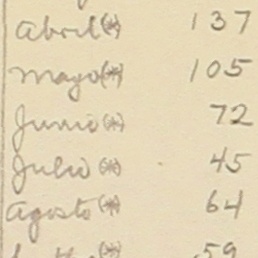 Abril(*) 137
Mayo(*) 105
Junio(*) 72
Julio(*) 45
Agosto(*) 64
(*) 59